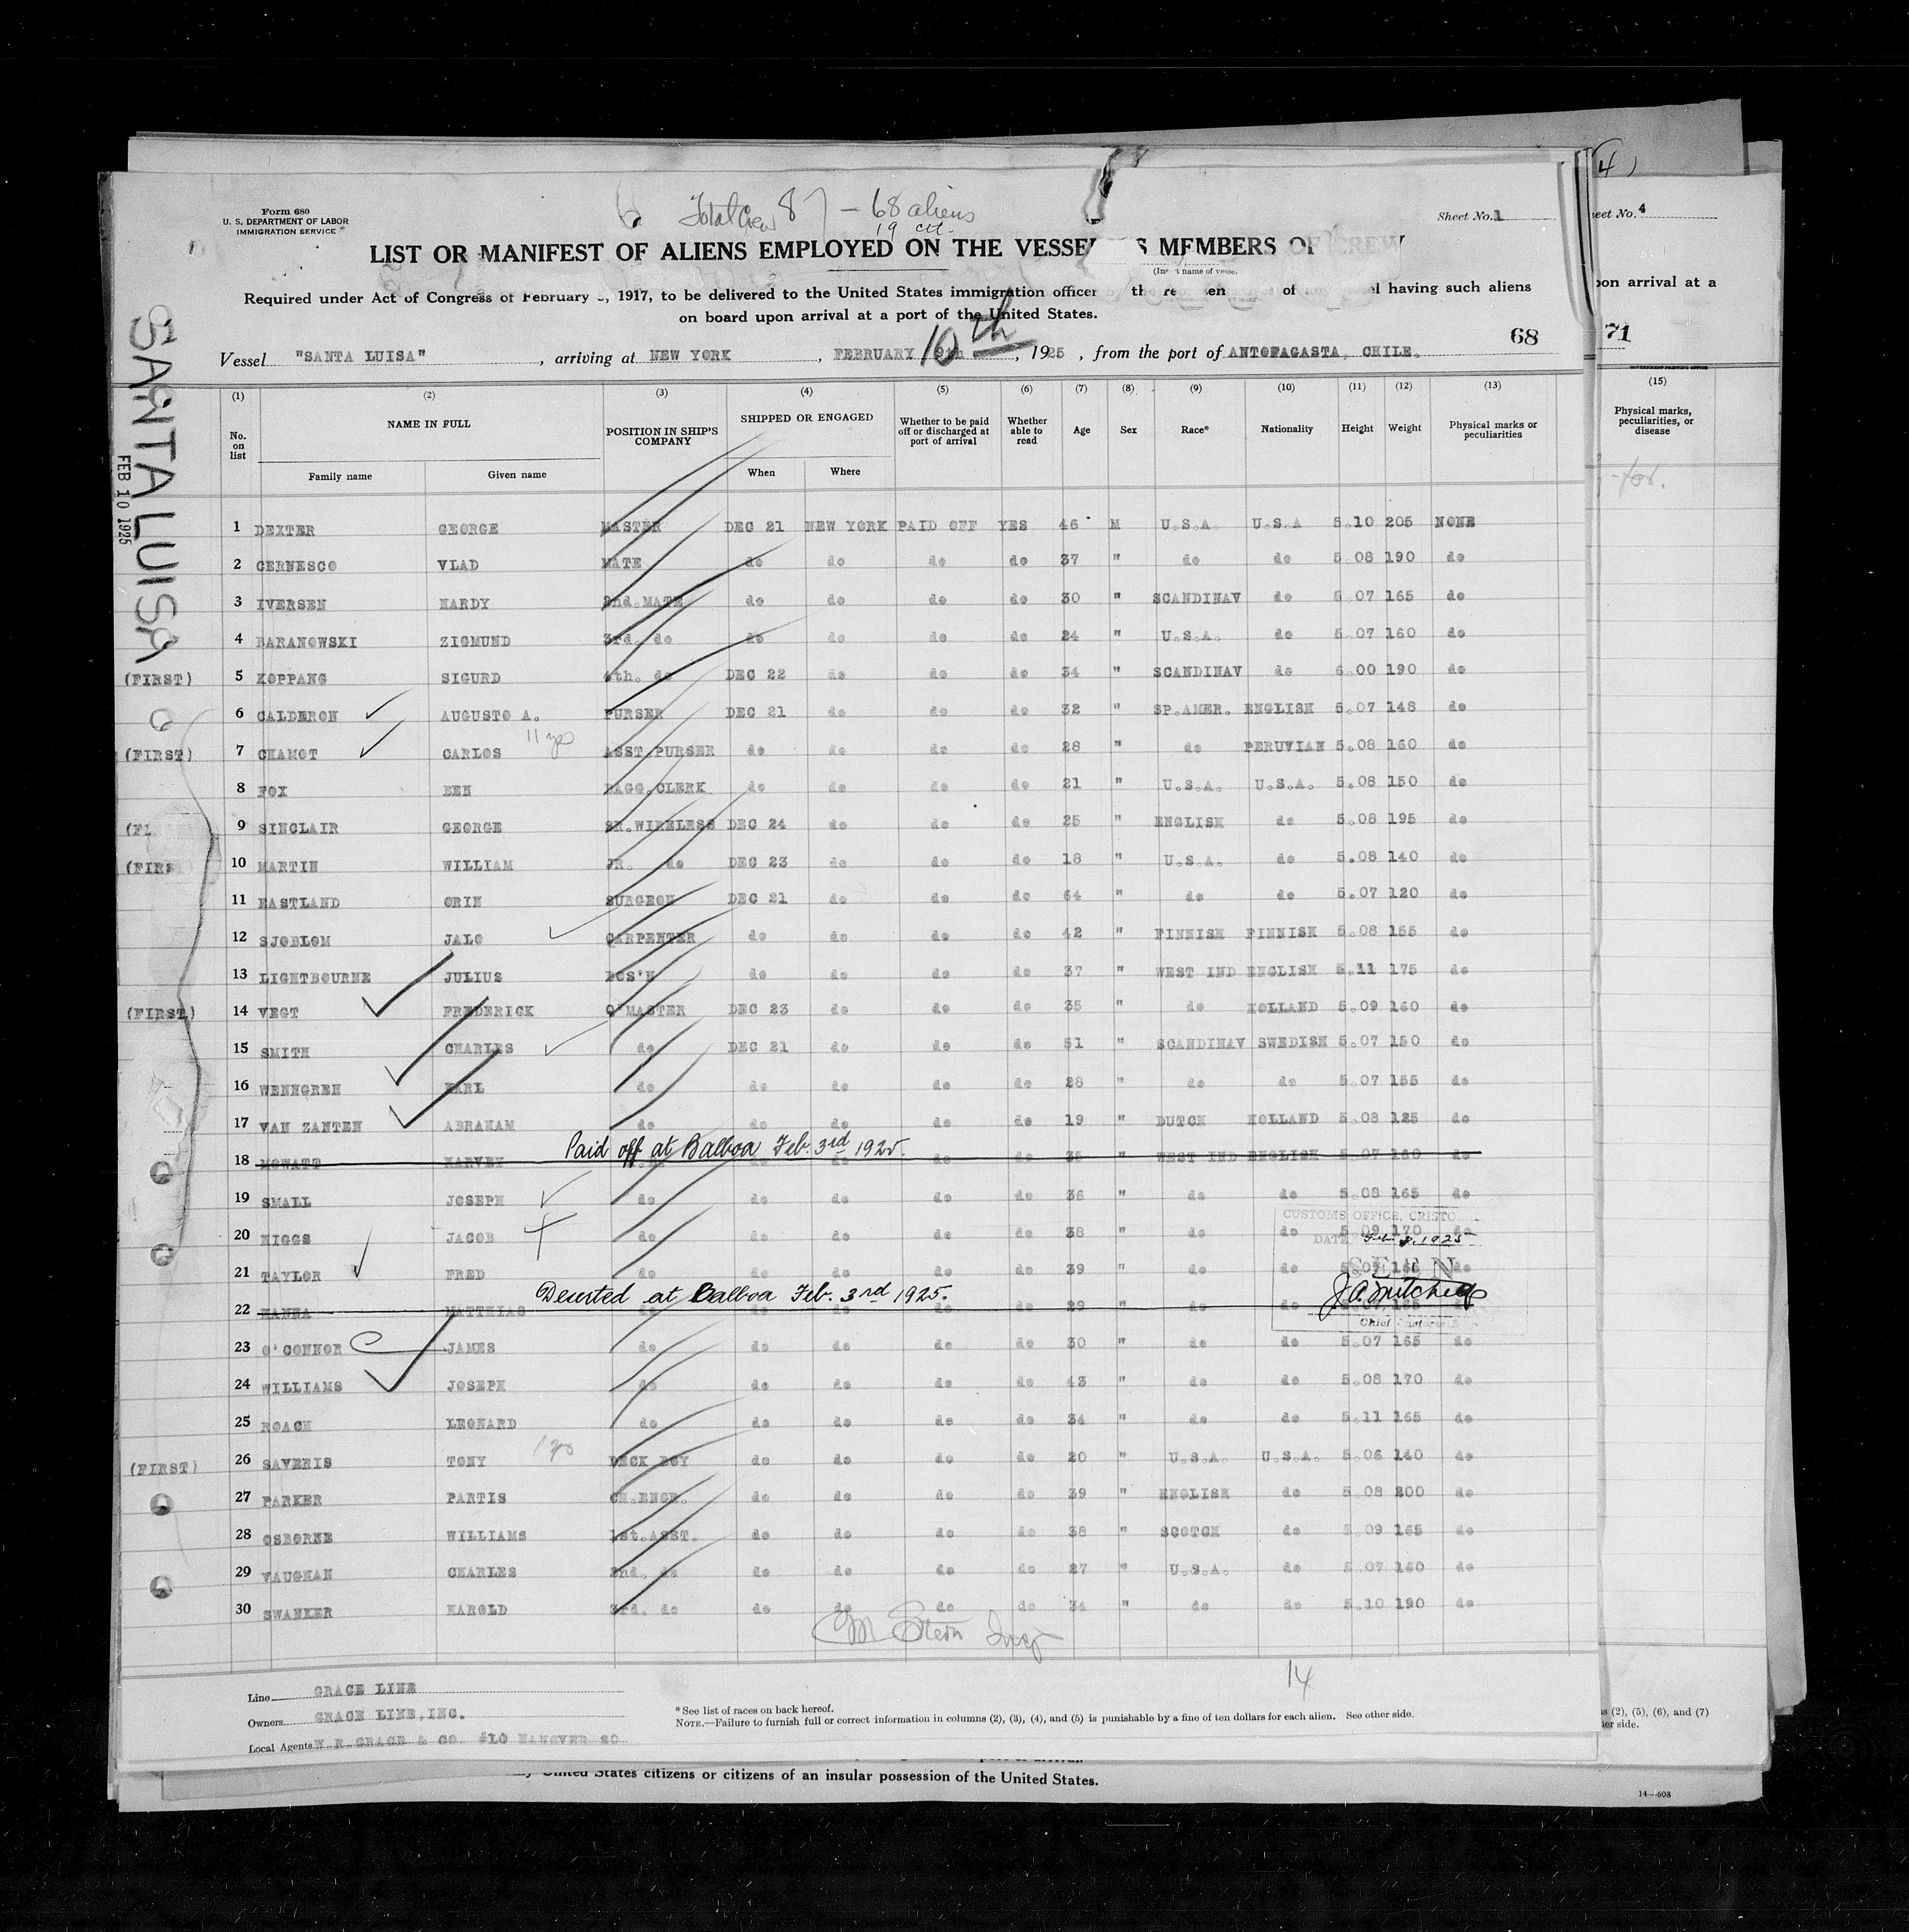 Form 680
U. S. DEPARTMENT OF LABOR
IMMIGRATION SERVICE
Total Crew 87 – 68 aliens
19 cit.
Sheet No. 1
LIST OR MANIFEST OF ALIENS EMPLOYED ON THE VESSEL AS MEMBERS OF CREW
Required under Act of Congress of February 5, 1917, to be delivered to the United States immigration officer by the of having such aliens
on board upon arrival at a port of the United States.
Vessel "SANTA LUISA", arriving at NEW YORK, FEBRUARY 9th 10th, 1925, from the port of ANTOFAGASTA, CHILE.
68
SANTA LUISA
FEB 10 1925
(1) (2) (3) (4) (5) (6) (7) (8) (9) (10) (11) (12) (13)
No. on list NAME IN FULL POSITION IN SHIP'S COMPANY SHIPPED OR ENGAGED Whether to be paid off or discharged at port of arrival Whether able to read Age Sex Race* Nationality Height Weight Physical marks or peculiarities
Family name Given name When Where
1 DEXTER GEORGE MASTER DEC 21 NEW YORK PAID OFF YES 46 M U.S.A. U.S.A 5.10 205 NONE
2 CERNESCO VLAD MATE do do do do 37 " do do 5.08 190 do
3 IVERSEN HARDY 2nd.MATE do do do do 30 " SCANDINAV do 5.07 165 do
4 BARANOWSKI ZIGMUND 3rd. do do do do do 24 " U.S.A. do 5.07 160 do
(FIRST) 5 KOPPANG SIGURD 4th. do DEC 22 do do do 34 " SCANDINAV do 6.00 190 do
6 CALDERON AUGUSTO A. PURSER DEC 21 do do do 32 " SP.AMER. ENGLISH 5.07 148 do
(FIRST) 7 CHAMOT CARLOS ASST PURSER do do do do 28 " do PERUVIAN 5.08 160 do
8 FOX BEN BAGG.CLERK do do do do 21 " U.S.A. U.S.A. 5.08 150 do
9 SINCLAIR GEORGE SR.WIRELESS DEC 24 do do do 25 " ENGLISH do 5.08 195 do
10 MARTIN WILLIAM JR. do DEC 23 do do do 18 " U.S.A. do 5.08 140 do
11 EASTLAND ORIN SURGEON DEC 21 do do do 64 " do do 5.07 120 do
12 SJOBLOM JALO CARPENTER do do do do 42 " FINNISH FINNISH 5.08 155 do
13 LIGHTBOURNE JULIUS BOS'N do do do do 37 " WEST IND ENGLISH 5.11 175 do
(FIRST) 14 VEGT FREDERICK Q'MASTER DEC 23 do do do 35 " do HOLLAND 5.09 160 do
15 SMITH CHARLES do DEC 21 do do do 51 " SCANDINAV SWEDISH 5.07 150 do
16 WENNGREN KARL do do do do do 28 " do do 5.07 155 do
17 VAN ZANTEN ABRAHAM do do do do do 19 " DUTCH HOLLAND 5.08 125 do
Paid off at Balboa Feb. 3rd 1925.
18 MOWATT HARVEY do do do do 35 " WEST IND ENGLISH 5.07 160 do
19 SMALL JOSEPH do do do do do 36 " do do 5.08 165 do
20 HIGGS JACOB do do do do do 38 " do do 5.09 170 do
21 TAYLOR FRED do do do do do 39 " do do do
Deserted at Balboa Feb. 3rd 1925.
22 HANNA MATTHIAS do do do do do 29 " do do do
23 O'CONNOR JAMES do do do do do 30 " do do 5.07 165 do
24 WILLIAMS JOSEPH do do do do do 43 " do do 5.08 170 do
25 ROACH LEONARD do do do do do 34 " do do 5.11 165 do
(FIRST) 26 SAVERIS TONY DECK BOY do do do do 20 " U.S.A. U.S.A. 5.06 140 do
27 PARKER PARTIS CH.ENGR. do do do do 39 " ENGLISH do 5.08 200 do
28 OSBORNE WILLIAMS 1st.ASST. do do do do 38 " SCOTCH do 5.09 165 do
29 VAUGHAN CHARLES 2nd. do do do do do 27 " U.S.A. do 5.07 150 do
30 SWANKER HAROLD 3rd. do do do do do 34 " do do 5.10 190 do
CUSTOMS OFFICE, CRISTO
DATE Feb. 1925
SEEN
Chief
Stern Insp
14
Line GRACE LINE
Owners GRACE LINE, INC.
Local Agents W R GRACE & CO #10 HANOVER SQ
*See list of races on back hereof.
NOTE.—Failure to furnish full or correct information in columns (2), (3), (4), and (5) is punishable by a fine of ten dollars for each alien. See other side.
United States citizens or citizens of an insular possession of the United States.
14—608
(4)
eet No. 4
on arrival at a
71
GOVERNMENT PRINTING OFFICE
(15)
Physical marks, peculiarities, or disease
(2), (5), (6), and (7)
er side.